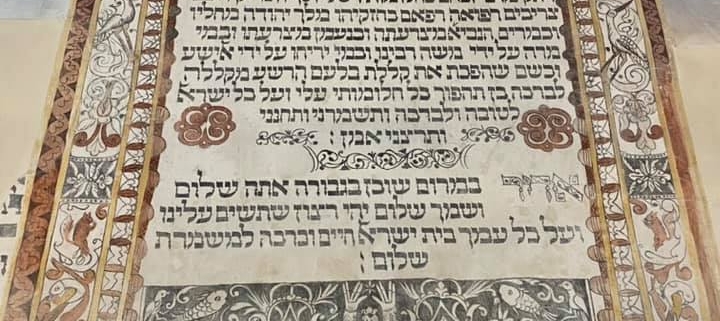 צריכים רפואה רפאם כחזקיהו מלך יהודה מחליו
וכמרים הנביאה מצרעתה וכנעמן מצרעתו וכמי
מרה על ידי משה רבינו וכמי יריחו על ידי אלישע
וכשם שהפכת את קללת בלעם הרשע מקללה
לברכה כן תהפוך כל חלומותי עלי ועל כל ישראל
לטובה ולברכה ותשמרני ותחנני
ותרצני אמן :
אדיר במרום שוכן בגבורה אתה שלום
ושמך שלום יהי רצון שתשים עלינו
ועל כל עמך בית ישראל חיים וברכה למשמרת
שלום :